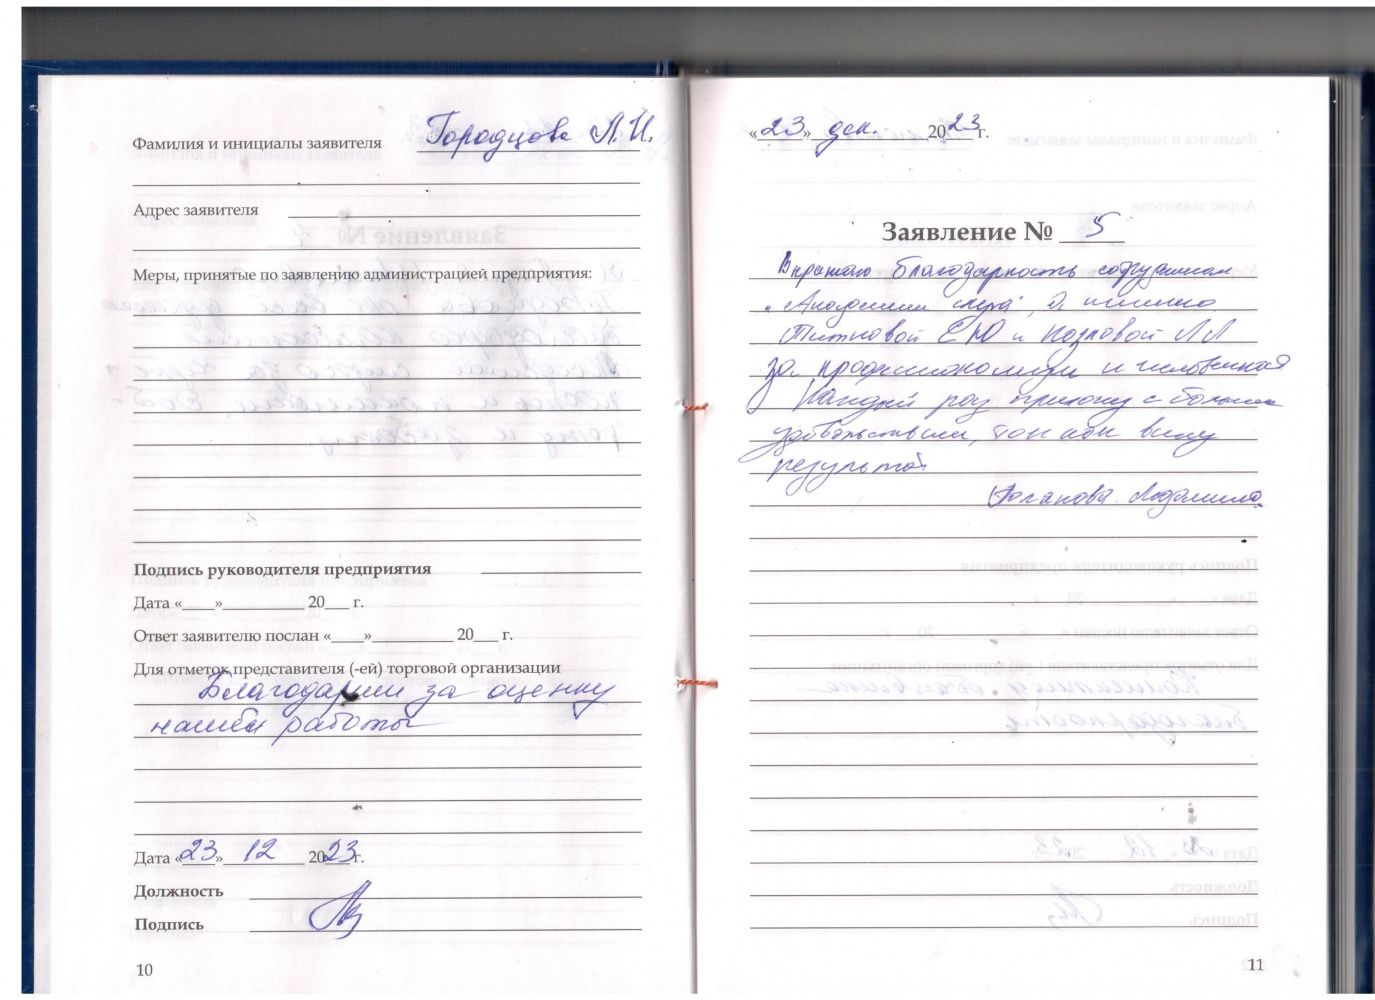 Фамилия и инициалы заявителя Городцова Л.И.
Адрес заявителя
Меры, принятые по заявлению администрацией предприятия:
Подпись руководителя предприятия
Дата «____»__________ 20___ г.
Ответ заявителю послан «____»__________ 20___ г.
Для отметок представителя (-ей) торговой организации
Благодарим за оценку
нашей работы
Дата «23» 12 2023 г.
Должность
Подпись
10
«23» дек. 2023 г.
Заявление № 5
Выражаю благодарность сотрудникам
"Академии
и Козловой
за профессионализм и
Каждый раз прихожу с большим
удовольствием, так как вижу
результат
Людмила.
11